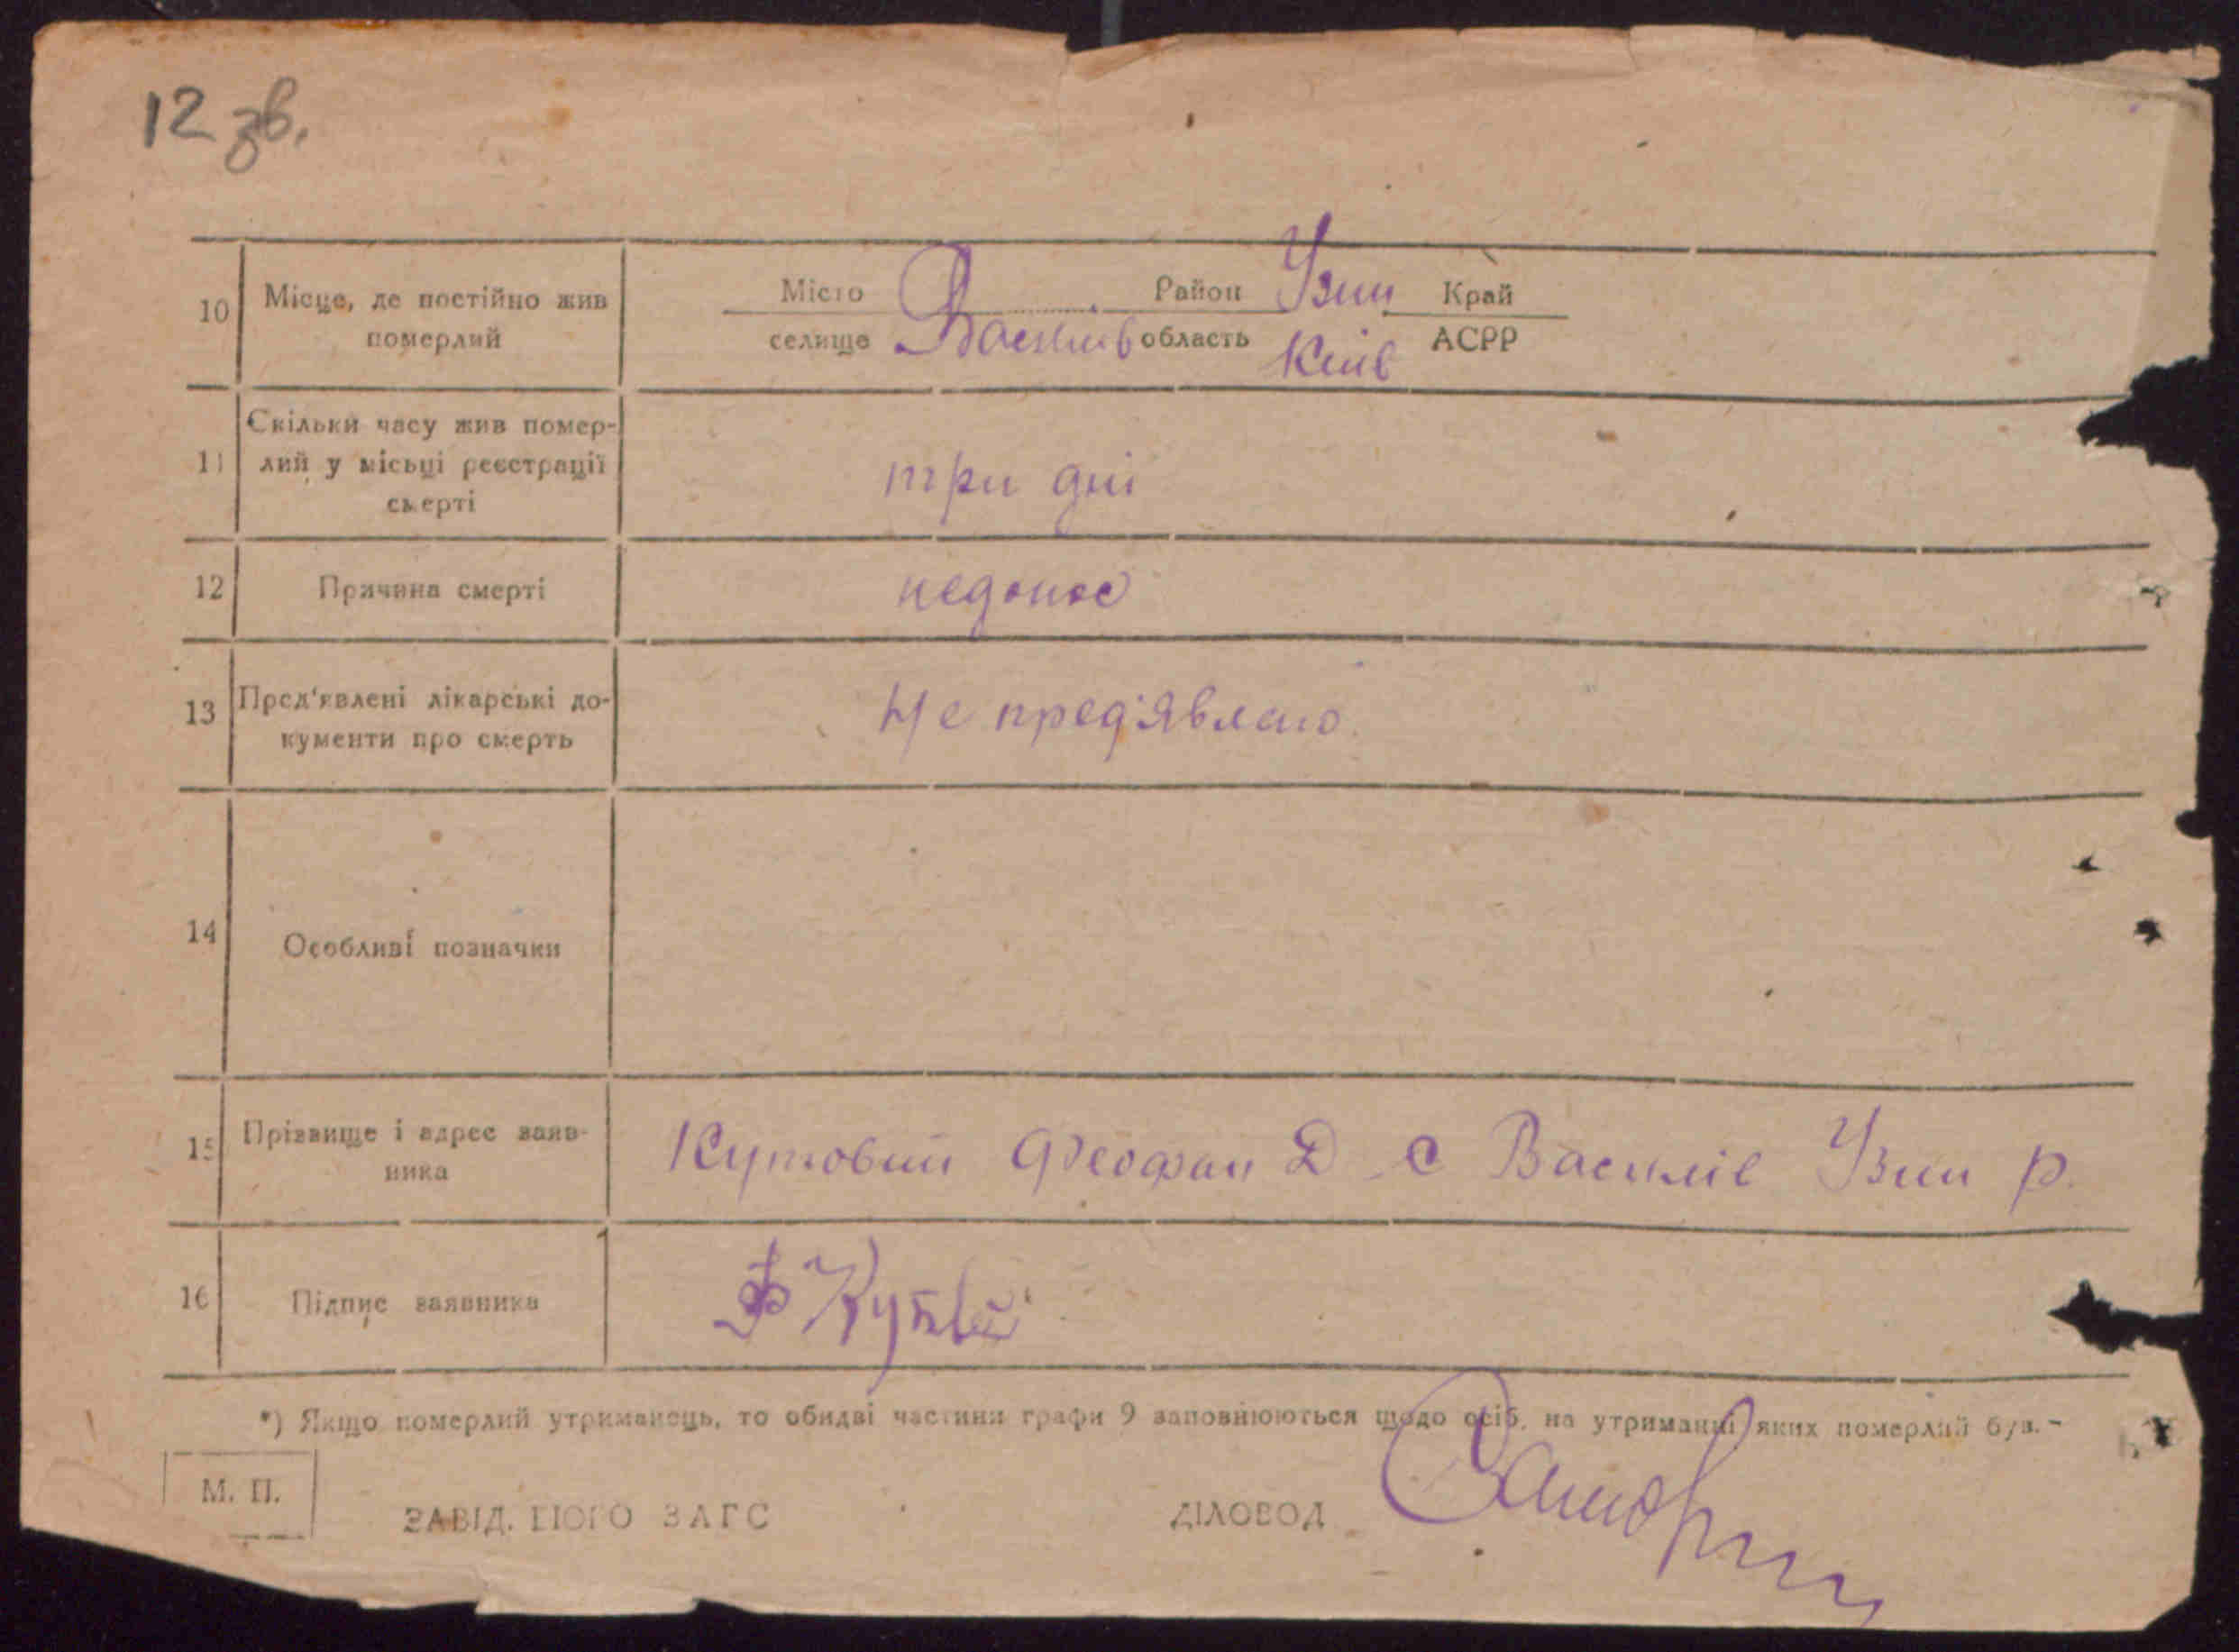 12 зв.
10 Місце, де постійно жив померлий
Місто Район Узин Край
селище Василів область Київ АСРР
11 Скільки часу жив помер-
лий у місьці реєстрації
смерті
три дні
12 Причина смерті недонос
13 Пред'явлені лікарські до-
кументи про смерть
Не пред'явлено
14 Особливі позначки
15 Прізвище і адрес заяв-
ника
Кутовий Феофан Д с Василів Узин р.
16 Підпис заявника Ф Кутвий
*) Якщо померлий утриманець, то обидві частини графи 9 заповнюються щодо осіб, на утриманні яких померлий був.-
М. П.
ЗАВІД. БЮРО ЗАГС ДІЛОВОД